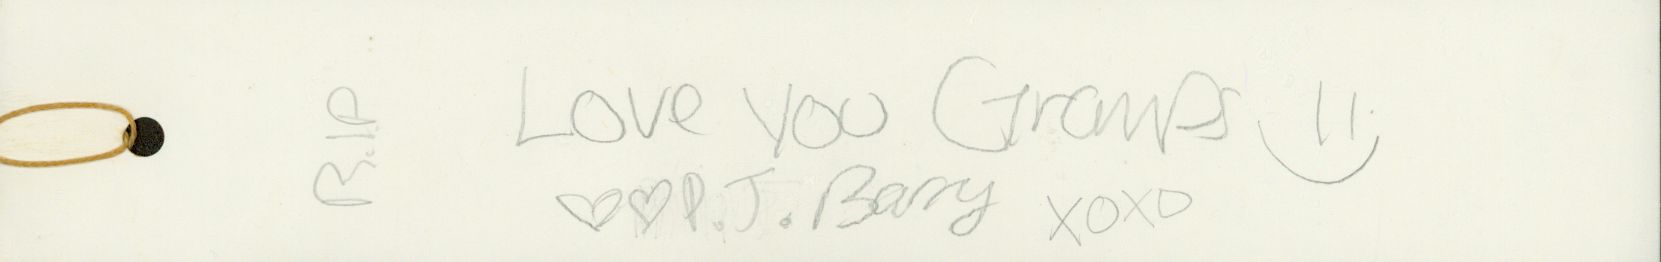 R.IP
Love you Gramps
P.J. Barry XOXO